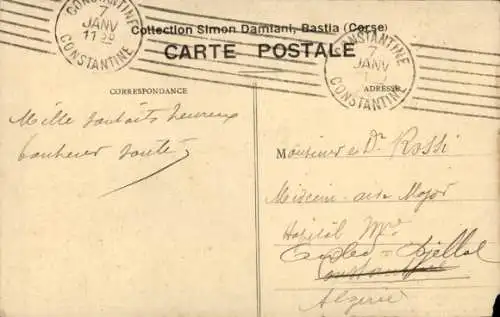 CONSTANTINE
7
JANV
11 30
CONSTANTINE
Collection Simon Damiani, Bastia (Corse)
CARTE POSTALE
CONSTANTINE
7
JANV
CONSTANTINE
CORRESPONDANCE
ADRESSE
Mille souhaits heureux
bonheur santé
Monsieur Dr Rossi
Médecin aide Major
Hôpital Mre
Djellal
Constantine
Algérie